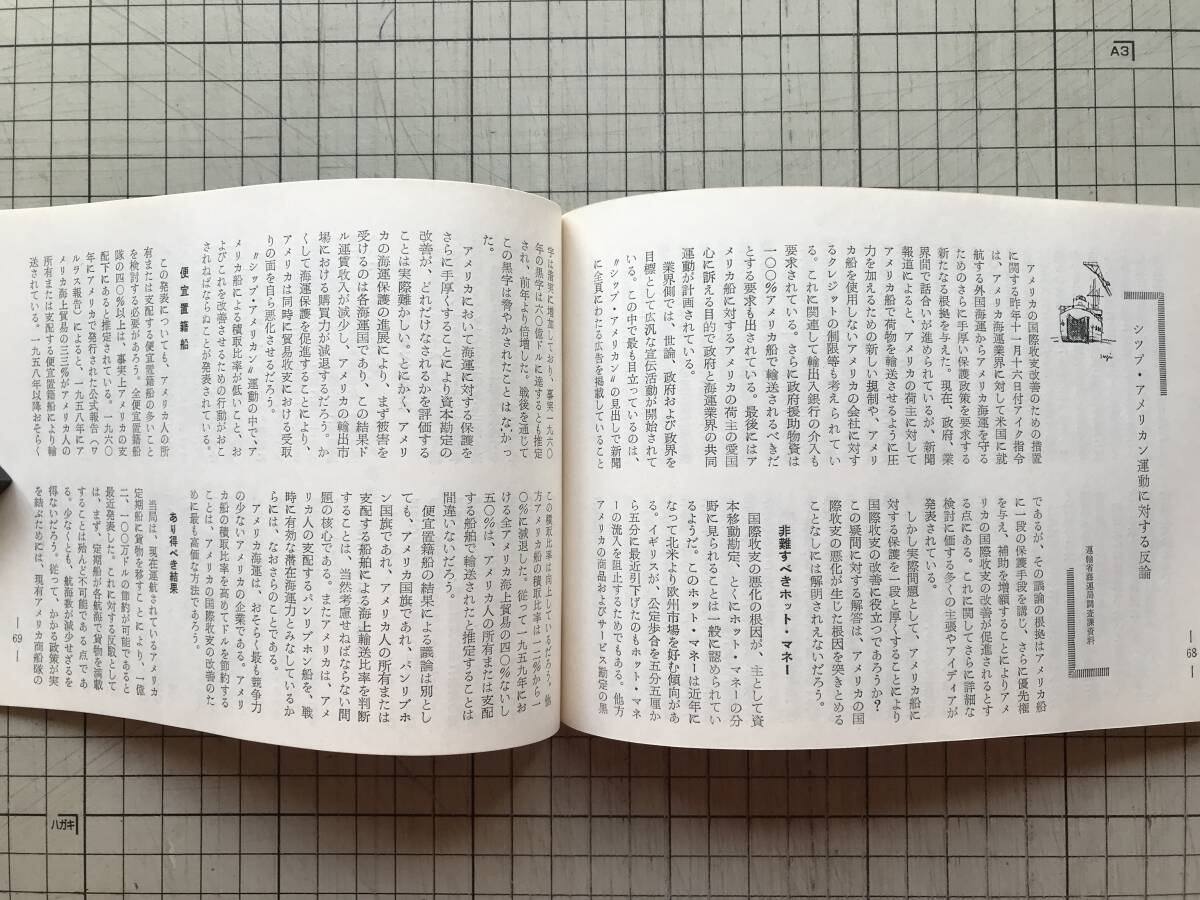 シップ・アメリカン運動に対する反論
運輸省海運局調査課資料
アメリカの国際収支改善のための措置
に関する昨年十一月十六日付アイク指令
は、アメリカ海運業界に対して米国に就
航する外国海運からアメリカ海運を守る
ためのさらに手厚い保護政策を要求する
新たなる根拠を与えた。現在、政府、業
界間で話合いが進められているが、新聞
報道によると、アメリカの荷主に対して
アメリカ船で荷物を輸送させるように圧
力を加えるための新しい規制や、アメリ
カ船を使用しないアメリカの会社に対す
るクレジットの制限等も考えられてい
る。これに関連して輸出入銀行の介入も
要求されている。さらに政府援助物資は
一〇〇％アメリカ船で輸送されるべきだ
とする要求も出されており、また最後に
アメリカ船に対するアメリカの荷主の愛国
心に訴える目的で政府と海運業界の共同
運動が計画されている。
業界側では、世論、政府および政界を
目標として広汎な宣伝活動が開始されて
いる。この中で最も目立っているのは、
〝シップ・アメリカン〟の見出しで新聞
に全頁にわたる広告を掲載していること
であるが、その議論の根拠はアメリカ船
に一段の保護手段を講じ、さらに優先権
を与え、補助を増額することによりアメ
リカの国際収支の改善が促進されるとす
る点にある。これに関してさらに詳細な
検討に価する多くの主張やアイディアが
発表されている。
しかし実際問題として、アメリカ船に
対する保護を一段と厚くすることにより
国際収支の改善に役立つであろうか？
この疑問に対する解答は、アメリカの国
際収支の悪化が生じた根因を突きとめる
ことなしには解明されえないだろう。
非難すべきホット・マネー
国際収支の悪化の根因が、主として資
本移動勘定、とくにホット・マネーの分
野に見られることは一般に認められてい
るようだ。このホット・マネーは近年に
なって北米より欧州市場を好む傾向があ
る。イギリスが、公定歩合を五分五厘か
ら五分に最近引下げたのもホット・マネ
ーの流入を阻止するためでもある。他方
アメリカの商品およびサービス勘定の黒
— 68 —
字は着実に増加しており、事実一九六〇
年の黒字は六〇億ドルに達するとも推定
され、前年より倍増した。戦後を通じて
この黒字は脅やかされたことはなかっ
た。
アメリカにおいて海運に対する保護を
さらに手厚くすることにより資本勘定の
改善が、どれだけなされるかを評価する
ことは実際難かしい。とにかく、アメリ
カの海運保護の進展により、まず被害を
受けるのは各海運国であり、この結果ド
ル運賃収入が減少し、アメリカの輸出市
場における購買力が減退するだろう。か
くして海運保護を促進することにより、
アメリカは同時に貿易収支における受取
りの面を自ら悪化させるだろう。
〝シップ・アメリカン〟運動の中で、ア
メリカ船による積取比率が低いこと、お
よびこれを改善させるための行動がおこ
されねばならぬことが発表されている。
便宜置籍船
この発表についても、アメリカ人の所
有または支配する便宜置籍船の多いこと
を検討する必要があろう。全便宜置籍船
隊の四〇％以上は、事実上アメリカの支
配下にあると推定されている。一九六〇
年にアメリカで発行された公式報告（ワ
ルラス報告）によると、一九五八年にア
メリカ海上貿易の三三％がアメリカ人の
所有または支配する便宜置籍船により輸
送されている。一九五八年以降おそらく
この積取比率は向上しているだろう。他
方アメリカ船の積取比率は一二％から一
〇％に減退した。従って一九五九年にお
ける全アメリカ海上貿易の四〇％ないし
五〇％は、アメリカ人の所有または支配
する船舶で輸送されたと推定することは
間違いないだろう。
便宜置籍船の結果による議論は別とし
ても、アメリカ国旗であれ、パンリブホ
ン国旗であれ、アメリカ人の所有または
支配する船舶による海上輸送比率を判断
することは、当然考慮せねばならない問
題の核心である。またアメリカは、アメ
リカ人の支配するパンリブホン船を、戦
時に有効な潜在海運力とみなしているか
らには、なおさらのことである。
アメリカ海運は、おそらく最も競争力
の少ないアメリカの企業である。アメリ
カ船の積取比率を高めてドルを節約する
ことは、アメリカの国際収支の改善のた
めに最も高価な方法であろう。
あり得べき結果
当局は、現在運航されているアメリカ
定期船に貨物を移すことにより、一億
二、一〇〇万ドルの節約が可能であると
最近発表した。これに対する反駁として
は、まず、定期船が各航海で貨物を満載
することは殆んど不可能である点で、あ
る。少なくとも、航海数が減少せざるを
得ないだろう。従って、かかる政策が実
を結ぶためには、現有アメリカ商船隊の
— 69 —
A3
ハガキ